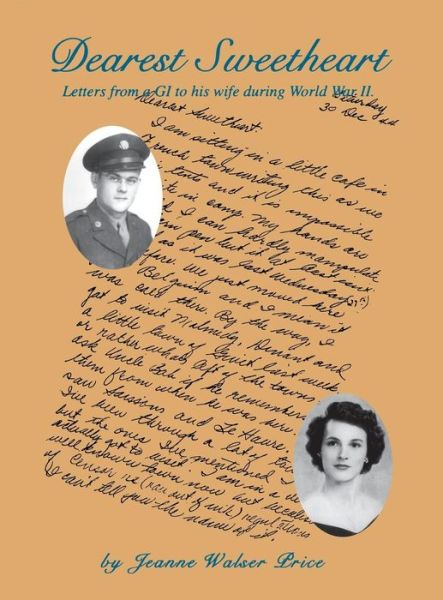 Dearest Sweetheart
Letters from a GI to his wife during World War II.
Saturday
30 Dec 44
Dearest Sweetheart:
I am sitting in a little cafe in
French town writing this as we
tents and it is impossible
in camp. My hands are
I can hardly manipulate
pen but it at least isn't
as it was last Wednesday
We just moved here
Belgium and I mean it
was cold there. By the way, I
got to visit Malmedy, Dinant and
a little town of last week
or rather whats left of the towns
ask Uncle Bob if he remembers
them from when he was here
saw Soissons and Le Havre.
I've been through a lot of
but the ones I've mentioned I
actually got to visit. I am in a
well known town now but because
of censor (ran out of ink) regulations
I can't tell you the name of it.
by Jeanne Walser Price